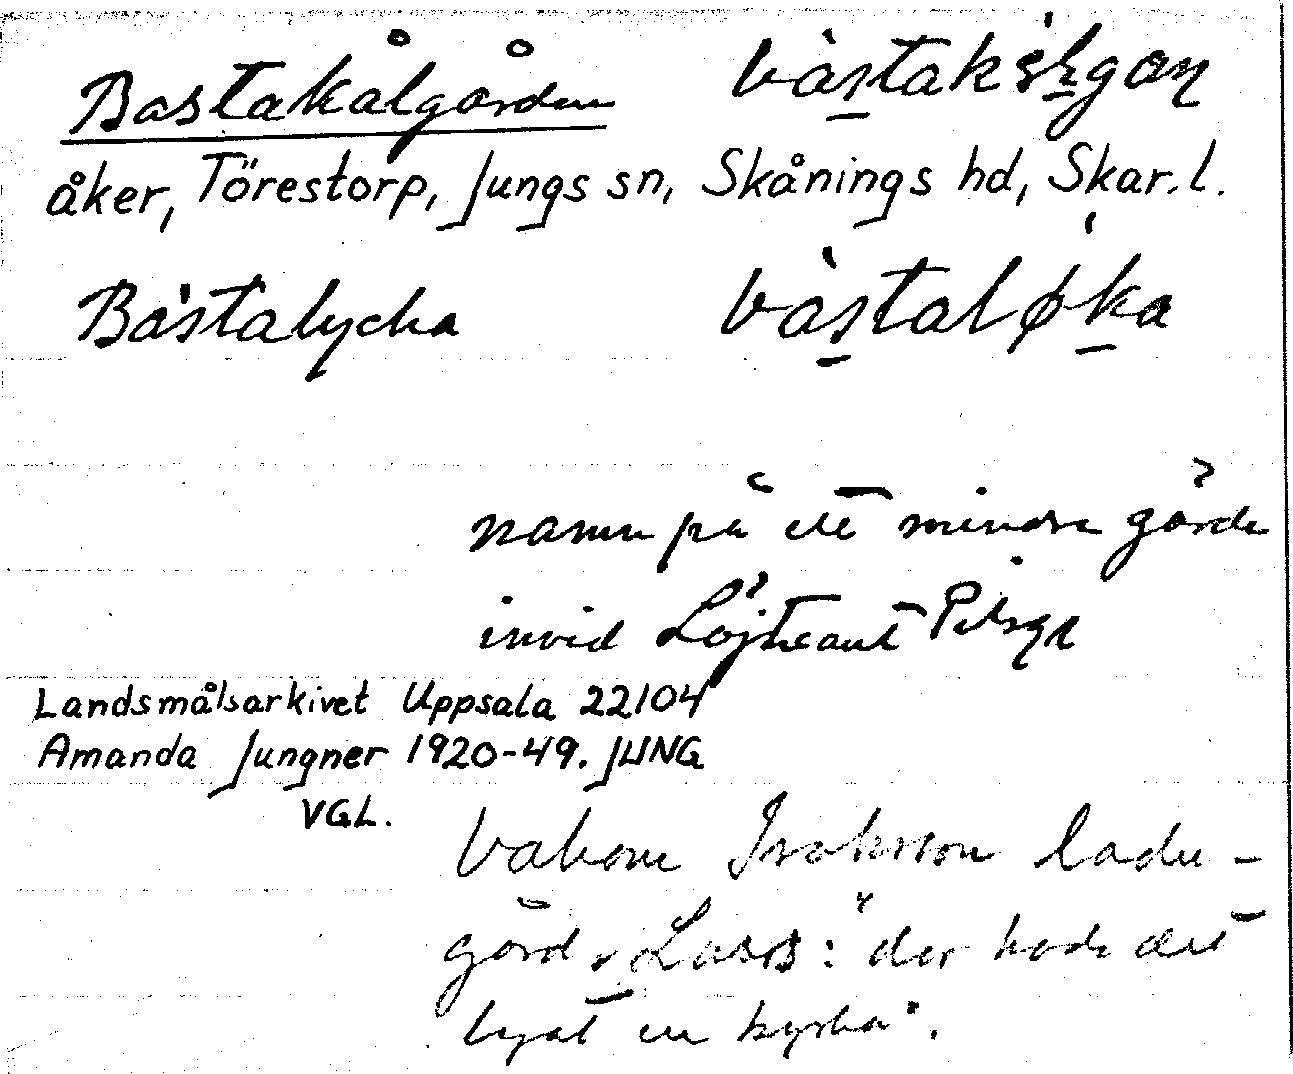 Bastakålgården bàstakålgan
åker, Törestorp, Jungs sn, Skånings hd, Skar. l.
Bastalycka bàstaløka
namn på ett mindre gärde
invid Löjtnant
Landsmålsarkivet Uppsala 22/04
Amanda Jungner 1920-49. JUNG
VGL.
bakom Isaksson ladu-
gård Lasses: "der hade det
lyst en kyrka".